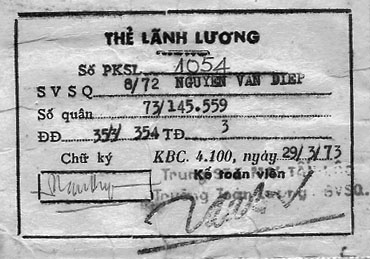 THẺ LÃNH LƯƠNG
Số PKSL 1054
SVSQ 8/72 NGUYEN VAN DIEP
Số quân 73/145.559
ĐĐ 354 TĐ 3
Chữ ký KBC. 4.100, ngày 29/3/73
Kế toán viên
Trung
Trưởng Toán Lương SVSQ.